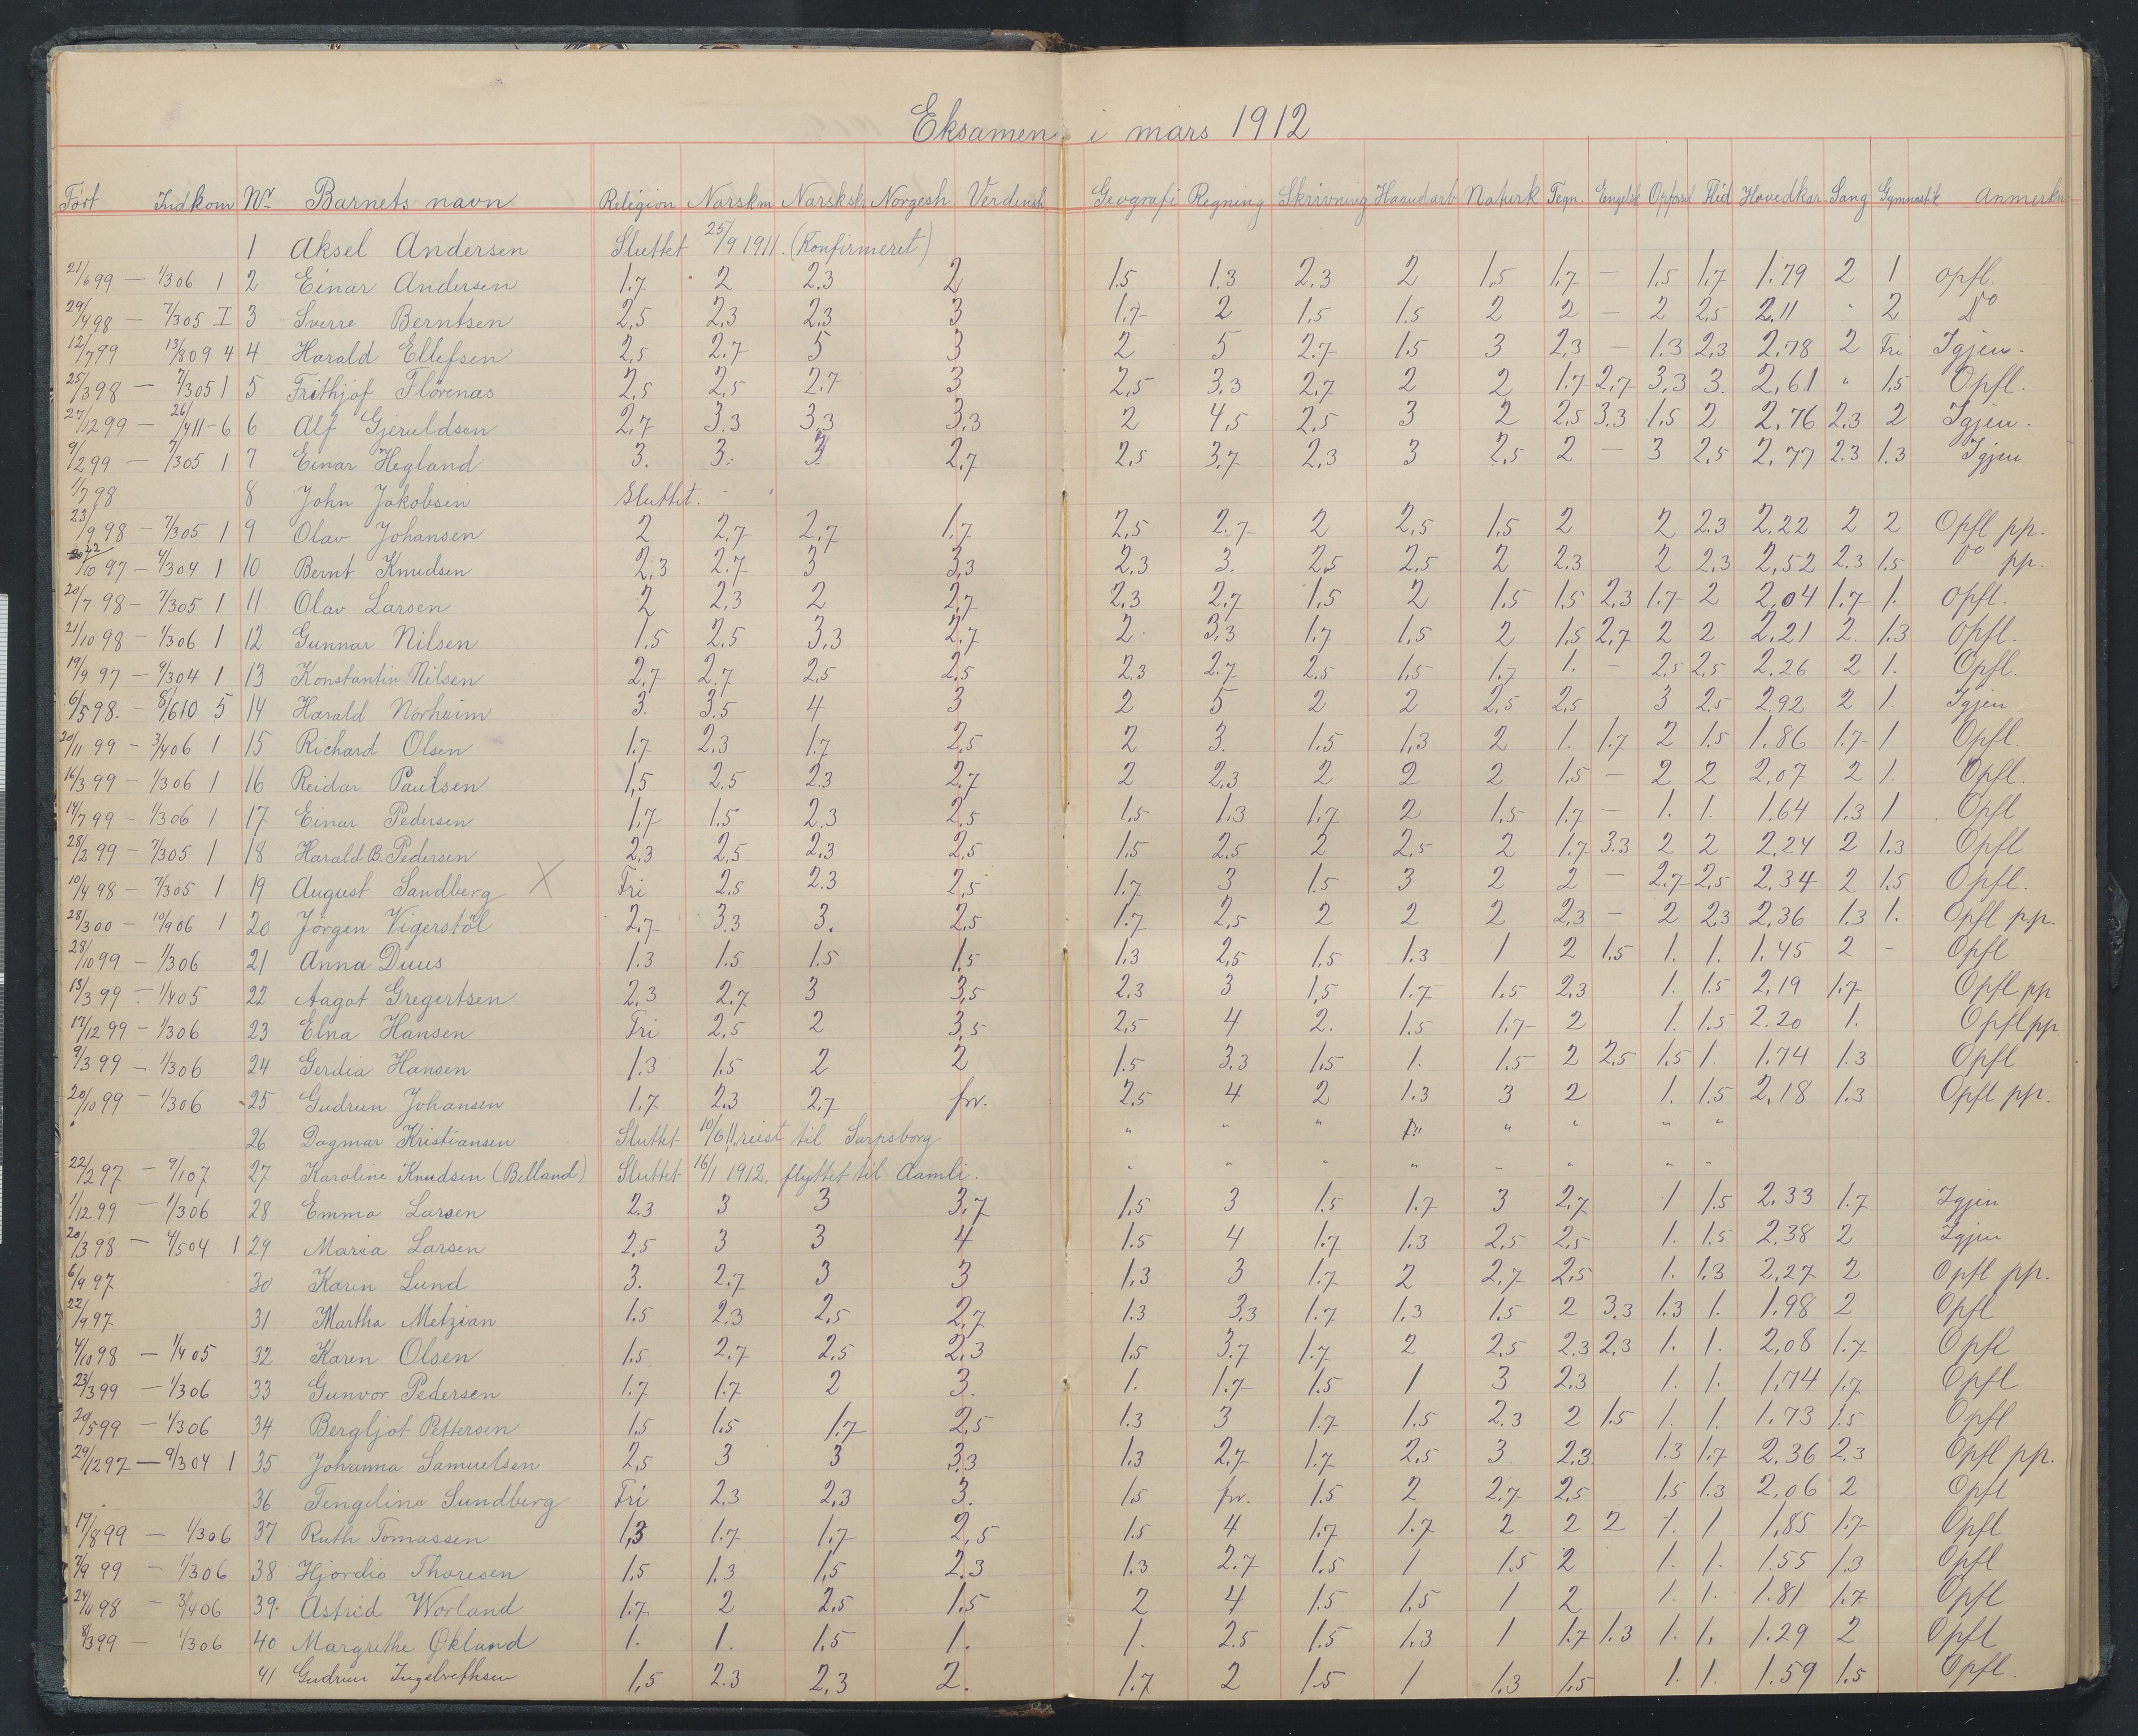 Eksamen i mars 1912
Født Indkom Nr Barnets navn Religion Norskm Norsksk Norgesh Verdensh Geografi Regning Skrivning Haandarb Naturk Tegn. Engelsk Oppførs Flid Hovedkar. Sang Gymnastik Anmerkn
1 Aksel Andersen Sluttet 25/9 1911. (Konfirmeret)
21/6 99 — 1/3 06 1 2 Einar Andersen 1.7 2 2.3 2 1.5 1.3 2.3 2 1.5 1.7 — 1.5 1.7 1.79 2 1 opfl.
29/4 98 — 7/3 05 I 3 Sverre Berntsen 2,5 2,3 2,3 3 1.7 2 1.5 1.5 2 2 — 2 2,5 2.11 " 2 Do
12/7 99 13/8 09 4 4 Harald Ellefsen 2,5 2.7 5 3 2 5 2.7 1.5 3 2,3 — 1.3 2,3 2.78 2 Fri Igjen.
25/3 98 — 7/3 05 1 5 Frithjof Flørenas 2,5 2,5 2.7 3 2,5 3,3 2,7 2 2 1.7 2,7 3,3 3. 2,61 " 1,5 Opfl.
27/12 99 — 26/4 11-6 6 Alf Gjeruldsen 2,7 3.3 3,3 3,3 2 4,5 2,5 3 2 2,5 3.3 1,5 2 2,76 2,3 2 Igjen.
9/2 99 — 7/3 05 1 7 Einar Hegland 3. 3. 3 2.7 2,5 3,7 2,3 3 2,5 2 — 3 2,5 2,77 2.3 1.3 Igjen
1/7 98 8 John Jakobsen Sluttet.
23/9 98 — 7/3 05 1 9 Olav Johansen 2 2,7 2,7 1.7 2,5 2.7 2 2,5 1.5 2 2 2.3 2.22 2 2 Opfl pp.
22/10 97 — 4/3 04 1 10 Bernt Knudsen 2,3 2.7 3 3,3 2.3 3. 2,5 2,5 2 2.3 2 2,3 2,52 2.3 1.5 Do pp.
20/7 98 — 7/3 05 1 11 Olav Larsen 2 2,3 2 2,7 2,3 2.7 1,5 2 1.5 1.5 2,3 1.7 2 2,04 1.7 1. opfl.
21/10 98 — 1/3 06 1 12 Gunnar Nilsen 1.5 2.5 3,3 2.7 2 3,3 1.7 1,5 2 1.5 2,7 2 2 2,21 2. 1.3 opfl.
19/9 97 — 9/3 04 1 13 Konstantin Nilsen 2,7 2.7 2,5 2,5 2.3 2.7 2,5 1,5 1.7 1. — 2,5 2,5 2.26 2 1. Opfl.
6/5 98. — 8/6 10 5 14 Harald Norheim 3. 3,5 4 3 2 5 2 2 2,5 2,5 3 2,5 2,92 2 1. Igjen
20/11 99 — 3/4 06 1 15 Richard Olsen 1.7 2.3 1.7 2,5 2 3. 1.5 1,3 2 1. 1.7 2 1.5 1.86 1.7 1 Opfl.
16/3 99 — 1/3 06 1 16 Reidar Paulsen 1,5 2.5 2.3 2.7 2 2,3 2 2 2 1.5 — 2 2 2,07 2 1. Opfl.
14/7 99 — 1/3 06 1 17 Einar Pedersen 1.7 1.5 2.3 2,5 1.5 1,3 1,7 2 1.5 1.7 — 1. 1. 1.64 1.3 1 Opfl
28/2 99 — 7/3 05 1 18 Harald B. Pedersen 2,3 2,5 2.3 2,5 1,5 2,5 2 2,5 2 1.7 3.3 2 2 2,24 2 1.3 Opfl
10/4 98 — 7/3 05 1 19 August Sandberg X Fri 2,5 2.3 2,5 1.7 3 1.5 3 2 2 — 2.7 2,5 2.34 2 1,5 Opfl.
28/3 00 — 10/9 06 1 20 Jørgen Vigerstøl 2,7 3.3 3. 2,5 1.7 2,5 2 2 2 2,3 — 2 2,3 2,36 1.3 1. Opfl pp.
28/10 99 — 1/3 06 21 Anna Duus 1.3 1.5 1.5 1,5 1,3 2,5 1,5 1.3 1 2 1.5 1. 1. 1,45 2 - Opfl
13/3 99 — 1/4 05 22 Aagot Gregertsen 2,3 2.7 3 3,5 2.3 3 1,5 1.7 1.5 2,3 1. 1.5 2,19 1.7 Opfl pp
17/12 99 — 1/3 06 23 Elna Hansen Fri 2,5 2 3,5 2,5 4 2. 1.5 1.7 2 1. 1.5 2.20 1. Opfl pp.
9/3 99 — 1/3 06 24 Gerdia Hansen 1.3 1.5 2 2 1.5 3,3 1,5 1. 1.5 2 2,5 1,5 1. 1.74 1.3 Opfl
20/10 99 — 1/3 06 25 Gudrun Johansen 1.7 2.3 2,7 frv. 2,5 4 2 1.3 3 2 1. 1.5 2,18 1.3 Opfl pp.
26 Dagmar Kristiansen Sluttet 10/6 11 reist til Sarpsborg " " " " " " "
22/2 97 — 9/1 07 27 Karoline Knudsen (Belland) Sluttet 16/1 1912, flyttet til Aamli. " " " " " " " "
1/12 99 — 1/3 06 28 Emma Larsen 2.3 3 3 3,7 1,5 3 1.5 1.7 3 2,7 1 1.5 2.33 1.7 Igjen
20/3 98 — 4/5 04 1 29 Maria Larsen 2,5 3 3 4 1.5 4 1.7 1.3 2,5 2,5 1. 1.5 2.38 2 Igjen
6/9 97 30 Karen Lund 3. 2.7 3 3 1,3 3 1.7 2 2,7 2,5 1. 1.3 2,27 2 Opfl pp.
22/9 97 31 Martha Metzian 1.5 2.3 2,5 2,7 1.3 3,3 1.7 1,3 1.5 2 3.3 1.3 1. 1,98 2 Opfl
4/10 98 — 1/4 05 32 Karen Olsen 1.5 2.7 2,5 2,3 1.5 3.7 1.7 2 2,5 2.3 2,3 1. 1. 2,08 1.7 Opfl
23/3 99 — 1/3 06 33 Gunvor Pedersen 1.7 1.7 2 3. 1. 1.7 1.5 1 3 2.3 1. 1. 1,74 1.7 Opfl
20/5 99 — 1/3 06 34 Bergljot Pettersen 1.5 1.5 1.7 2,5 1.3 3 1.7 1.5 2.3 2 1.5 1. 1. 1.73 1.5 Opfl
29/12 97 — 9/3 04 1 35 Johanna Samuelsen 2,5 3 3 3,3 1.3 2,7 1.7 2,5 3 2,3 1.3 1.7 2.36 2.3 Opfl pp.
36 Tengeline Sundberg Fri 2.3 2,3 3. 1.5 frv. 1.5 2 2,7 2,5 1.5 1.3 2,06 2 Opfl
19/8 99 — 1/3 06 37 Ruth Tomassen 1,3 1.7 1.7 2,5 1.5 4 1.7 1.7 2 2 2 1. 1 1,85 1.7 Opfl
7/9 99 — 1/3 06 38 Hjordis Thoresen 1,5 1.3 1,5 2.3 1.3 2.7 1.5 1 1.5 2 1. 1. 1.55 1.3 Opfl
98 — 3/4 06 39. Astrid Worland 1.7 2 2.5 1.5 2 4 1.5 1.5 1 2 1. 1. 1.81 1.7 Opfl
8/3 99 — 1/3 06 40 Margrithe Økland 1. 1. 1,5 1. 1. 2.5 1.5 1,3 1 1.7 1.3 1. 1. 1.29 2 Opfl
41 Gudrun 1,5 2.3 2,3 2. 1.7 2 1.5 1 1,3 1,5 1. 1. 1.59 1.5 Opfl.